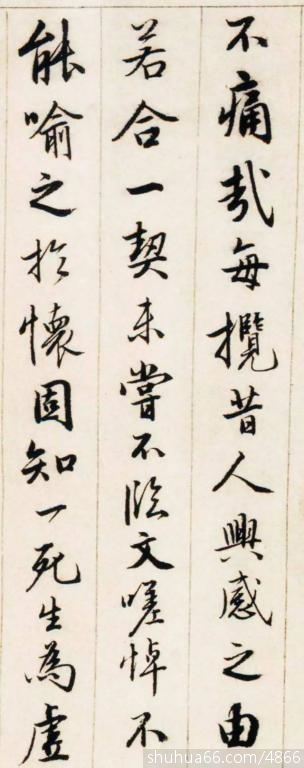 不痛哉每攬昔人興感之由
若合一契未嘗不臨文嗟悼不
能喻之於懷固知一死生為虛
shuhua66.com/4866